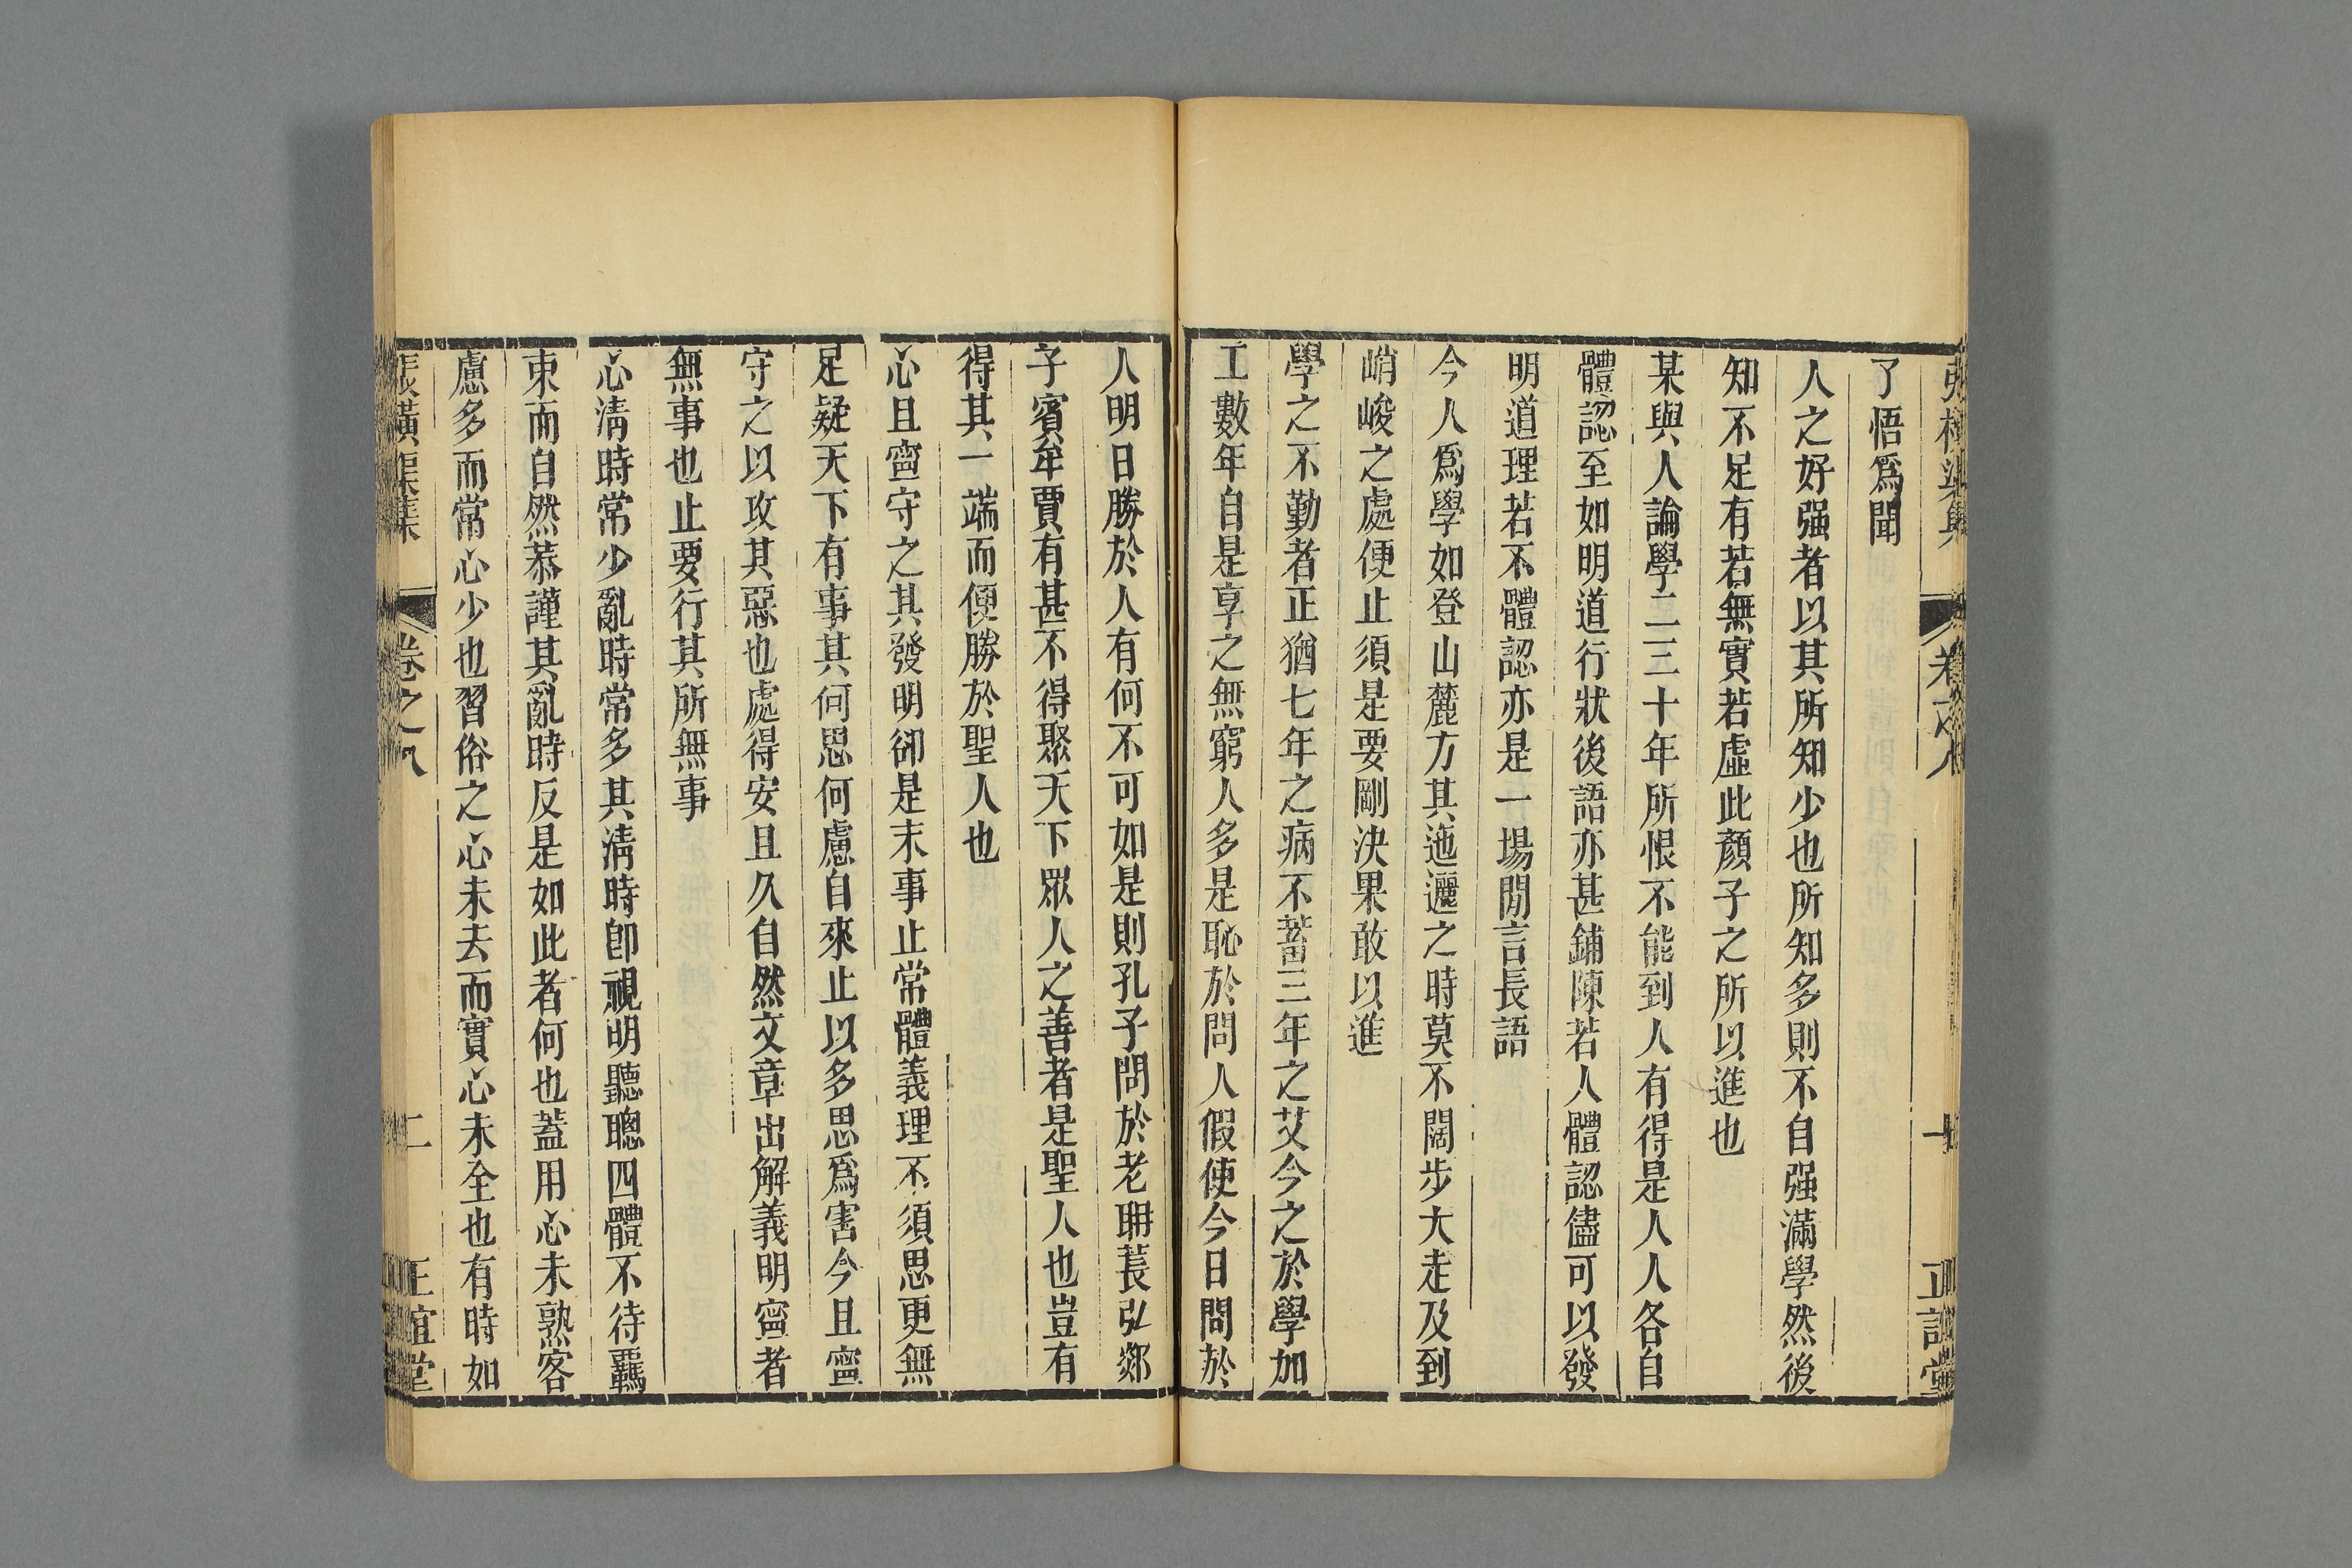 張橫渠集 卷之八 一 正誼堂
了悟爲聞
人之好强者以其所知少也所知多則不自强滿學然後
知不足有若無實若虛此顏子之所以進也
某與人論學二三十年所恨不能到人有得是人人各自
體認至如明道行狀後語亦甚鋪陳若人體認儘可以發
明道理若不體認亦是一場閒言長語
今人爲學如登山麓方其迤邐之時莫不闊步大走及到
峭峻之處便止須是要剛決果敢以進
學之不勤者正猶七年之病不蓄三年之艾今之於學加
工數年自是享之無窮人多是恥於問人假使今日問於
人明日勝於人有何不可如是則孔子問於老聃萇弘郯
子賓牟賈有甚不得聚天下眾人之善者是聖人也豈有
得其一端而便勝於聖人也
心且寧守之其發明卻是末事止常體義理不須思更無
足疑天下有事其何思何慮自來止以多思爲害今且寧
守之以攻其惡也處得安且久自然文章出解義明寧者
無事也止要行其所無事
心清時常少亂時常多其清時卽視明聽聰四體不待羈
束而自然恭謹其亂時反是如此者何也蓋用心未熟客
慮多而常心少也習俗之心未去而實心未全也有時如
張橫渠集 卷之八 二 正誼堂